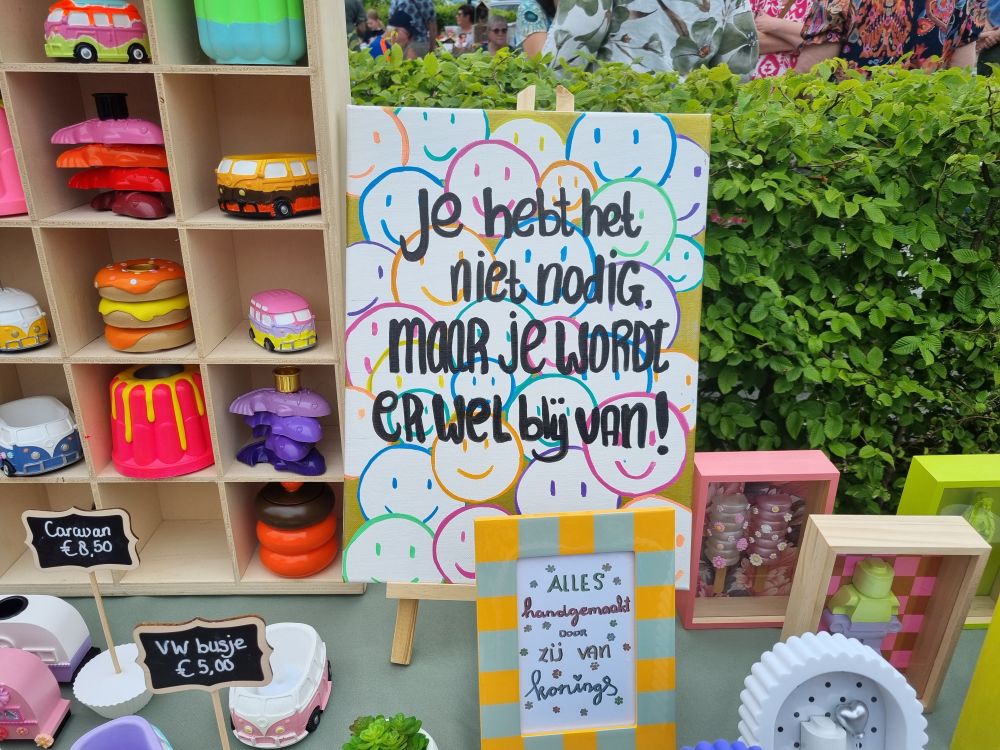 Je hebt het
niet nodig,
maar je wordt
er wel blij van!
Caravan
€8,50
VW busje
€5,00
ALLES
handgemaakt
DOOR
zij van
konings